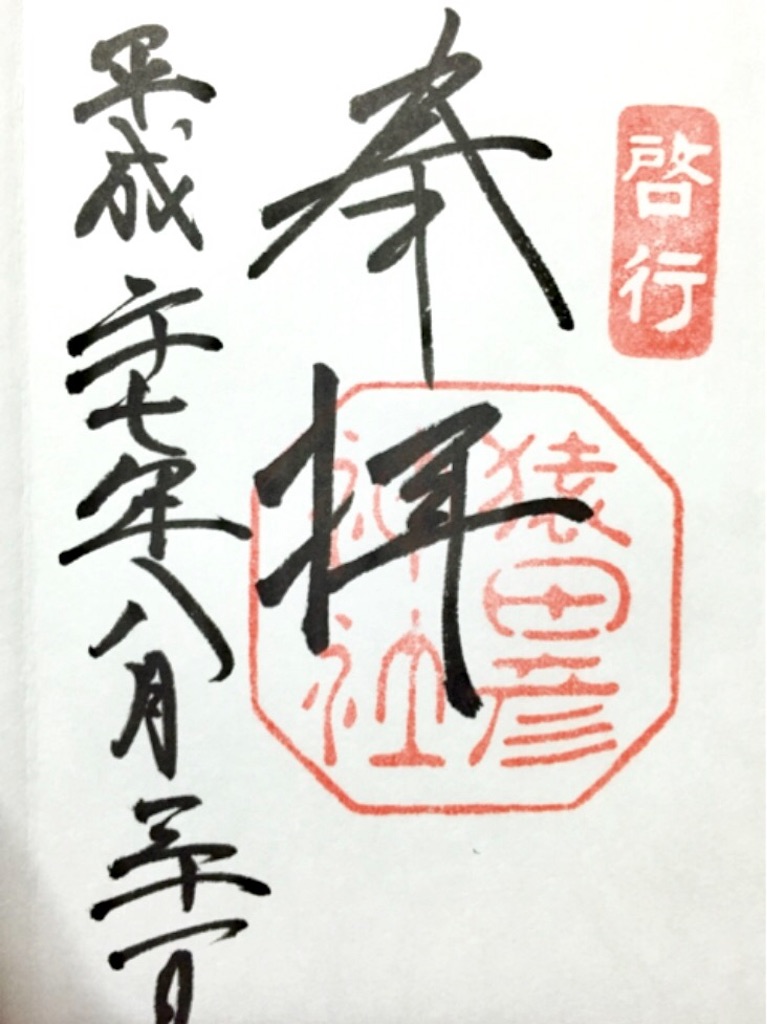 啓行
奉拝
猿田彦
神社
平成二十七年八月三十一日